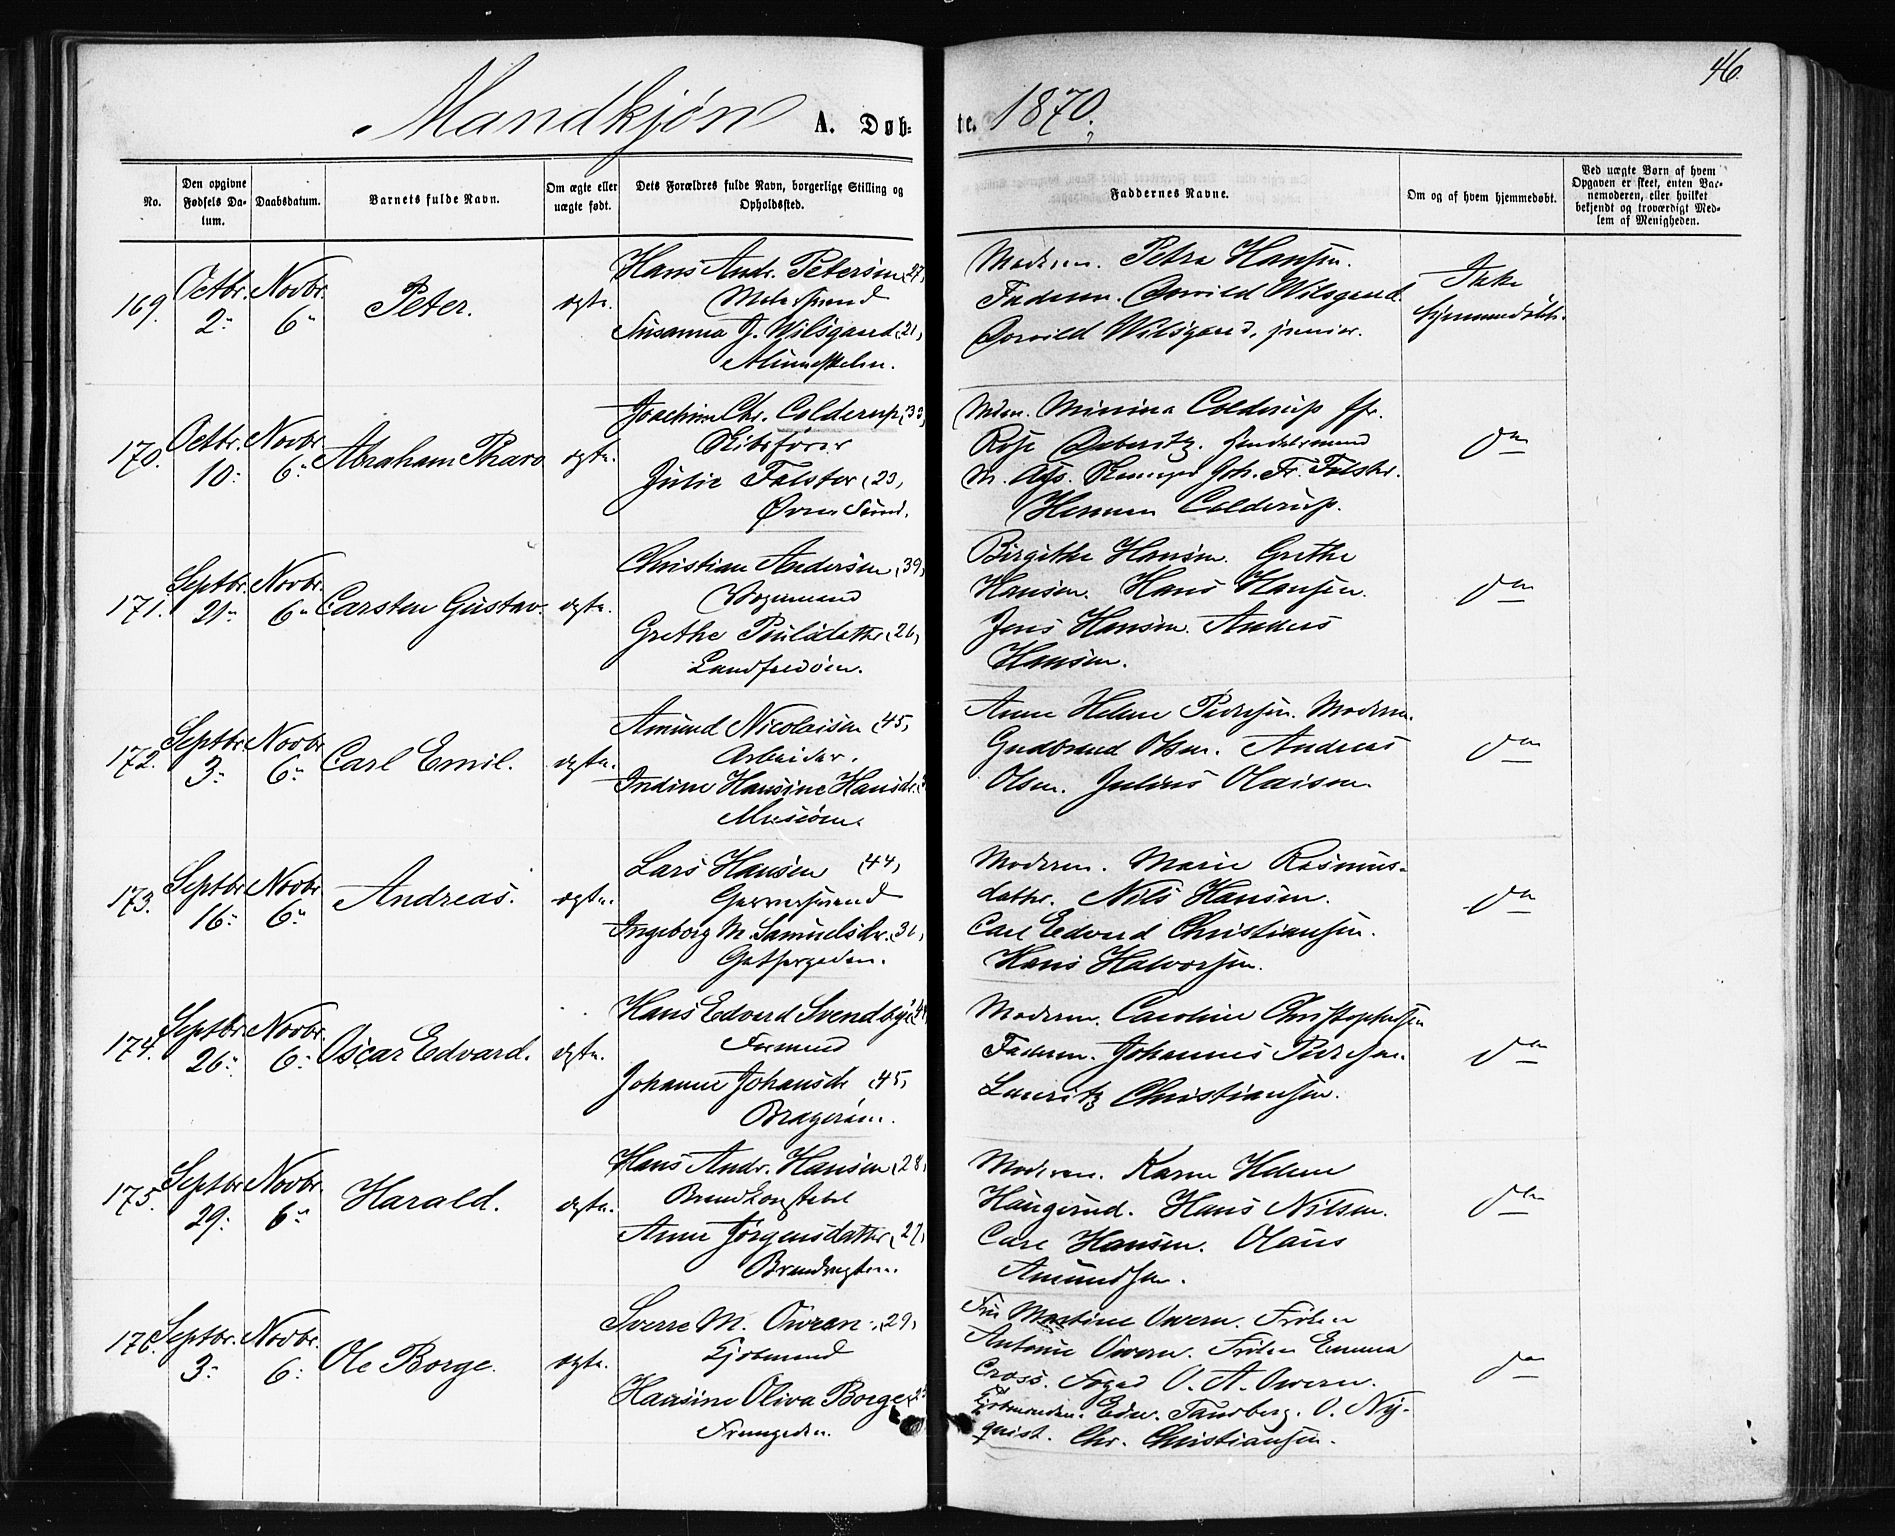 46.
Mandkjøn A. Døb-
te. 1870.
No.
Den opgivne
Fødsels Da-
tum.
Daabsdatum.
Barnets fulde Navn.
Om ægte eller
uægte født.
Dets Forældres fulde Navn, borgerlige Stilling og
Opholdssted.
Faddernes Navne.
Om og af hvem hjemmedøbt.
Ved uægte Børn af hvem
Opgaven er skeet, enten Bar-
nemoderen, eller hvilket
bekjendt og troværdigt Med-
lem af Menigheden.
169.
Octbr.
2
Novbr.
6
Peter.
ægte.
Hans Andr. Petersen (27,
Malersvend
Susanna J. Wilsgaard, (21,
Moderen. Petra Hansen.
Faderen. Wilsgaard
Wilsgaard, junior.
Ikke
hjemmedøbt.
170.
Octbr.
10
Novbr.
6
Abraham Tharo
ægte.
Joachim Chr. Colderup,
Skibsfører
Julie Falster (23,
Øvre Sund.
Mdm. Minina Colderup
M. Joh. Fr. Falster.
Herman Colderup.
do
171.
Septbr.
21
Novbr.
6
Carsten Gustav.
ægte.
Christian Andersen (39,
Vognmand
Grethe Paulsdatter (26,
Landfaldøen.
Birgithe Hansen. Grethe
Hansen. Hans Hansen.
Jens Hansen. Anders
Hansen.
do
172.
Septbr.
3
Novbr
6
Carl Emil.
ægte.
Amund Nicolaisen (45,
Arbeider.
Indine Hansine Hansdr.
Anne Helene Pedersen. Moderen.
Gudbrand Olsen. Andreas
Olsen. Julius Olaisen
do
173.
Septbr
16
Novbr
6
Andreas.
ægte.
Lars Hansen (44,
Garversvend
Ingeborg M. Samuelsdr.
Moderen. Marie Rasmus-
datter. Nils Hansen.
Carl Edvard Christiansen.
Hans Halvorsen.
do
174.
Septbr
26
Novbr.
6
Oscar Edvard.
ægte.
Hans Edvard Svendby
Formand
Johanne Johansdr (45,
Bragerøen.
Moderen. Caroline Christophersen
Faderen. Johannes Pedersen.
Lauritz Christiansen.
do
175.
Septbr
29
Novbr.
6
Harald.
ægte.
Hans Andr. Hansen (28,
Brandkonstabel
Anne Jørgensdatter (27,
Brandvagten.
Moderen. Karen Helene
Haugerud. Hans Nilsen.
Carl Hansen. Olaus
Amundsen.
do
176.
Septbr.
3
Novbr.
6
Ole Borge.
ægte.
Sverre M. Owren (29,
Kjøbmand
Hansine Oliva Borge
Fru Martine Owren. Frøken
Antonie Owren. Frøken Emma
Cross. Foged O. A. Owren.
Kjøbmænden. Edv. Tandberg. O. Ny-
quist. Chr. Christiansen.
do